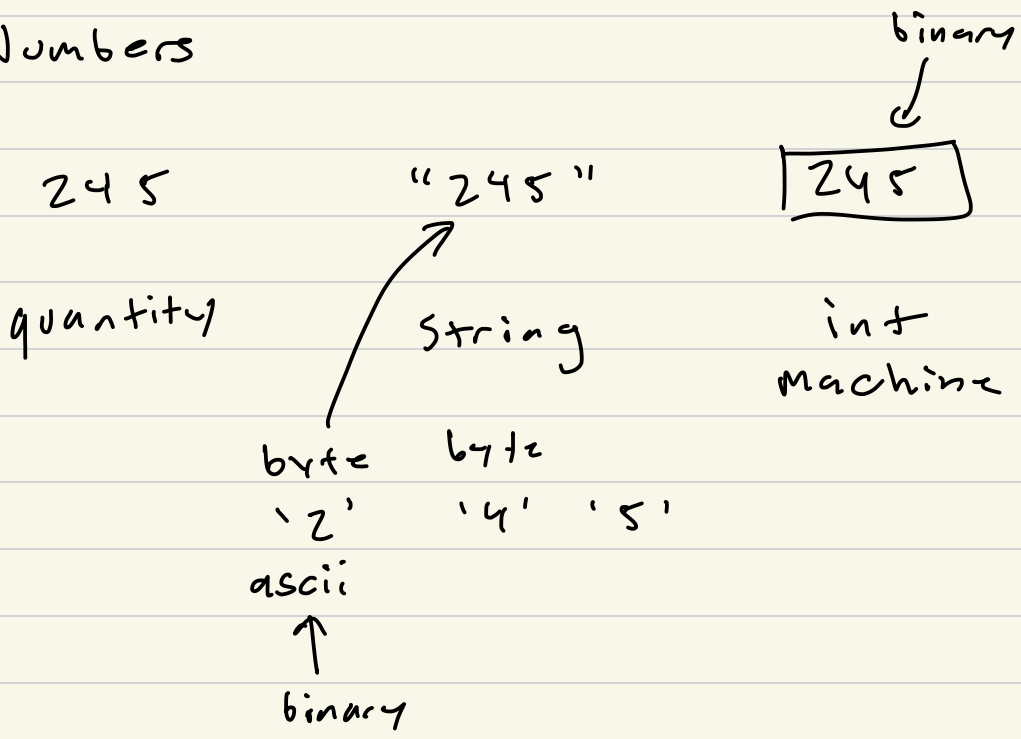 binary
Numbers
245 "245" 245
quantity string int
machine
byte byte
'2' '4' '5'
ascii
binary